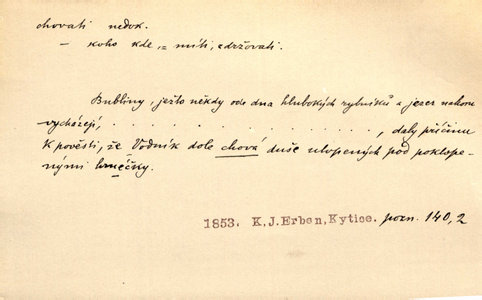 chovati nedok.
— koho kde, = míti, zdržovati.
Bubliny, ježto někdy ode dna hlubokých rybníků a jezer nahoru
vycházejí, . . . . . . . . . . . . . . . , daly příčinu
k pověsti, že Vodník dole chová duše utopených pod poklope-
nými hrnéčky.
1853. K.J.Erben, Kytice. pozn. 140,2